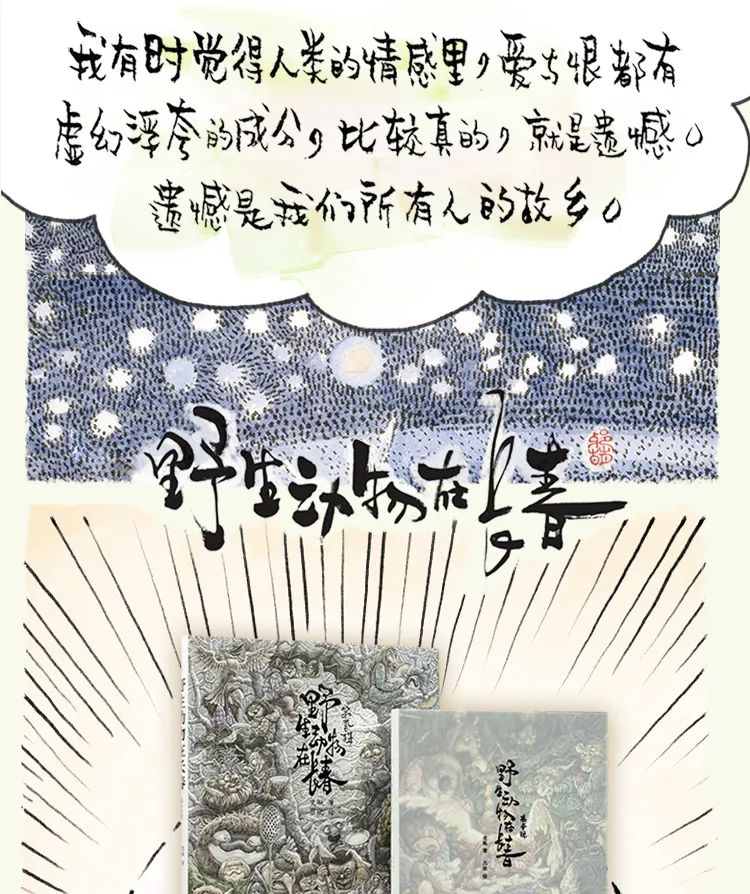 我有时觉得人类的情感里，爱与恨都有
虚幻浮夸的成分，比较真的，就是遗憾。
遗憾是我们所有人的故乡。
野生动物在长春
野生动物
在长春
野生动物在长春